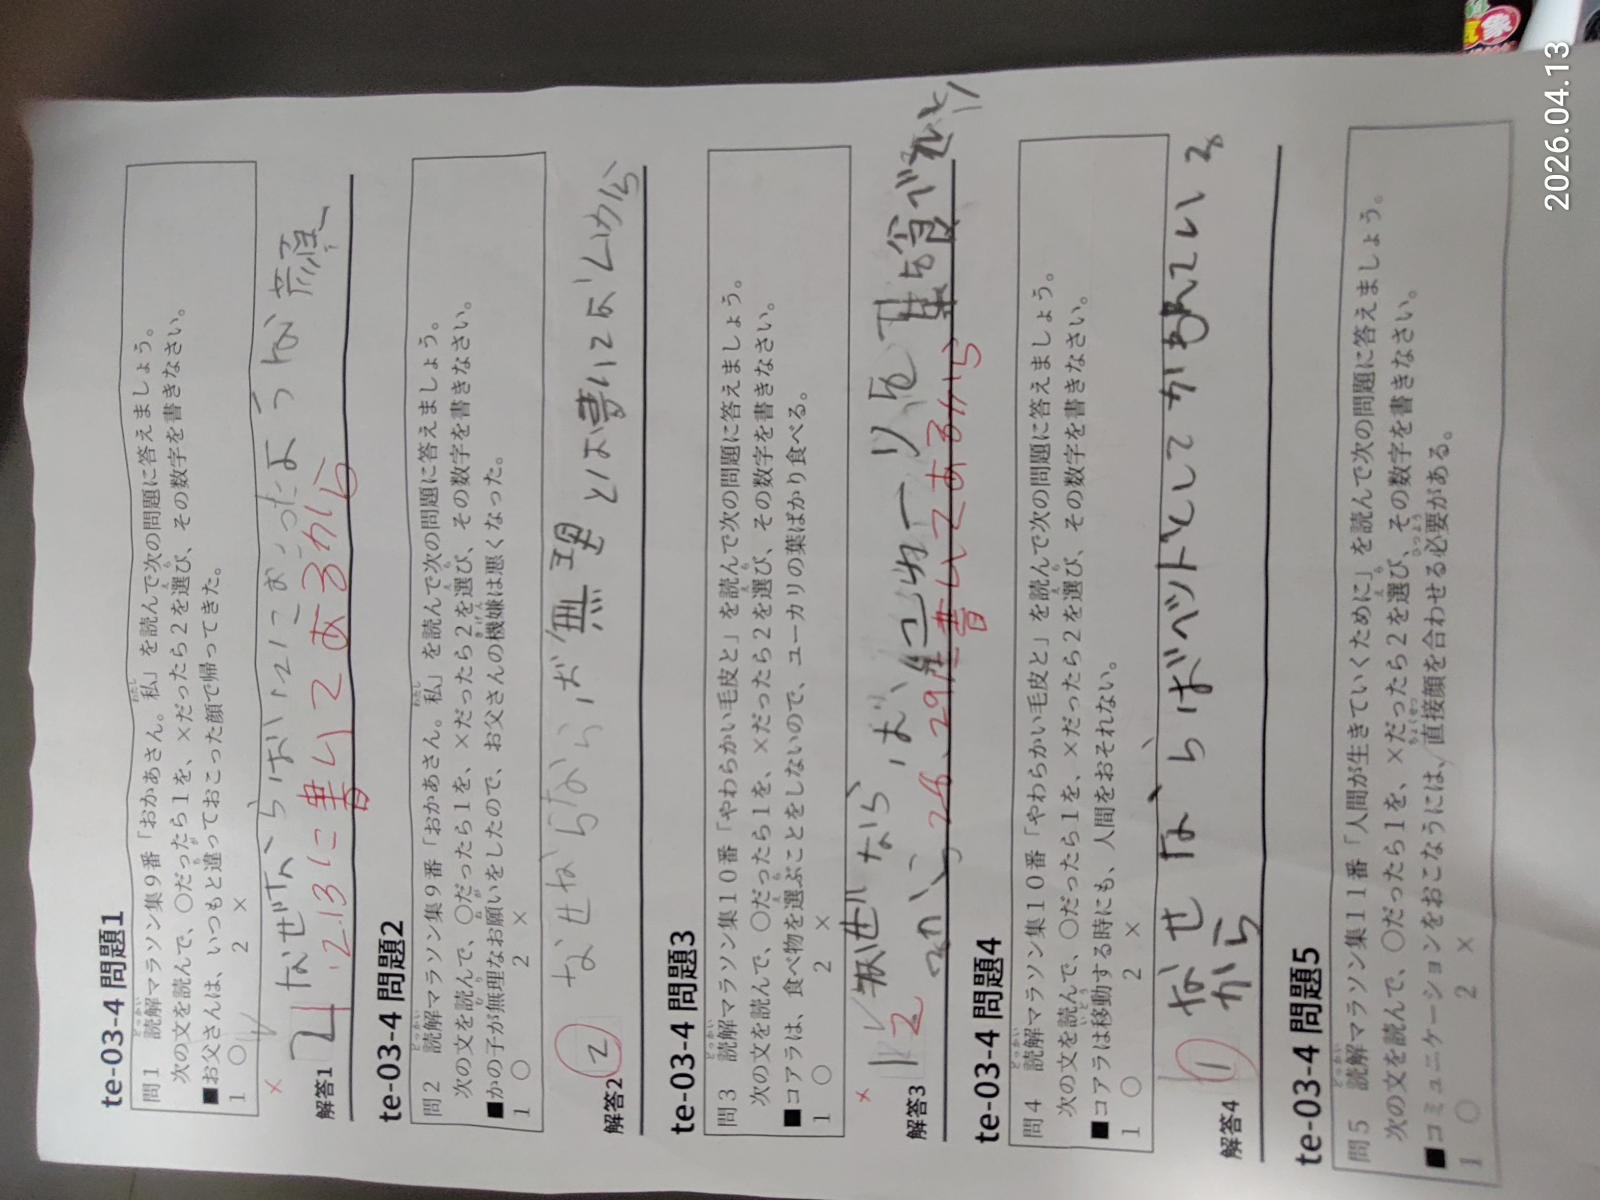 te-03-4 問題1
問1 読解マラソン集9番「おかあさん。私」を読んで次の問題に答えましょう。
次の文を読んで、○だったら1を、×だったら2を選び、その数字を書きなさい。
■お父さんは、いつもと違っておこった顔で帰ってきた。
1 ○ 2 ×
解答1 なぜならば
に書いてあるから
te-03-4 問題2
問2 読解マラソン集9番「おかあさん。私」を読んで次の問題に答えましょう。
次の文を読んで、○だったら1を、×だったら2を選び、その数字を書きなさい。
■かの子が無理なお願いをしたので、お父さんの機嫌は悪くなった。
1 ○ 2 ×
解答2 2
te-03-4 問題3
問3 読解マラソン集10番「やわらかい毛皮と」を読んで次の問題に答えましょう。
次の文を読んで、○だったら1を、×だったら2を選び、その数字を書きなさい。
■コアラは、食べ物を選ぶことをしないので、ユーカリの葉ばかり食べる。
1 ○ 2 ×
解答3 2
書いてあるから
te-03-4 問題4
問4 読解マラソン集10番「やわらかい毛皮と」を読んで次の問題に答えましょう。
次の文を読んで、○だったら1を、×だったら2を選び、その数字を書きなさい。
■コアラは移動する時にも、人間をおそれない。
1 ○ 2 ×
解答4 1 なぜならばペットとしてかわれている
から
te-03-4 問題5
問5 読解マラソン集11番「人間が生きていくために」を読んで次の問題に答えましょう。
次の文を読んで、○だったら1を、×だったら2を選び、その数字を書きなさい。
■コミュニケーションをおこなうには、直接顔を合わせる必要がある。
1 ○ 2 ×
2026.04.13